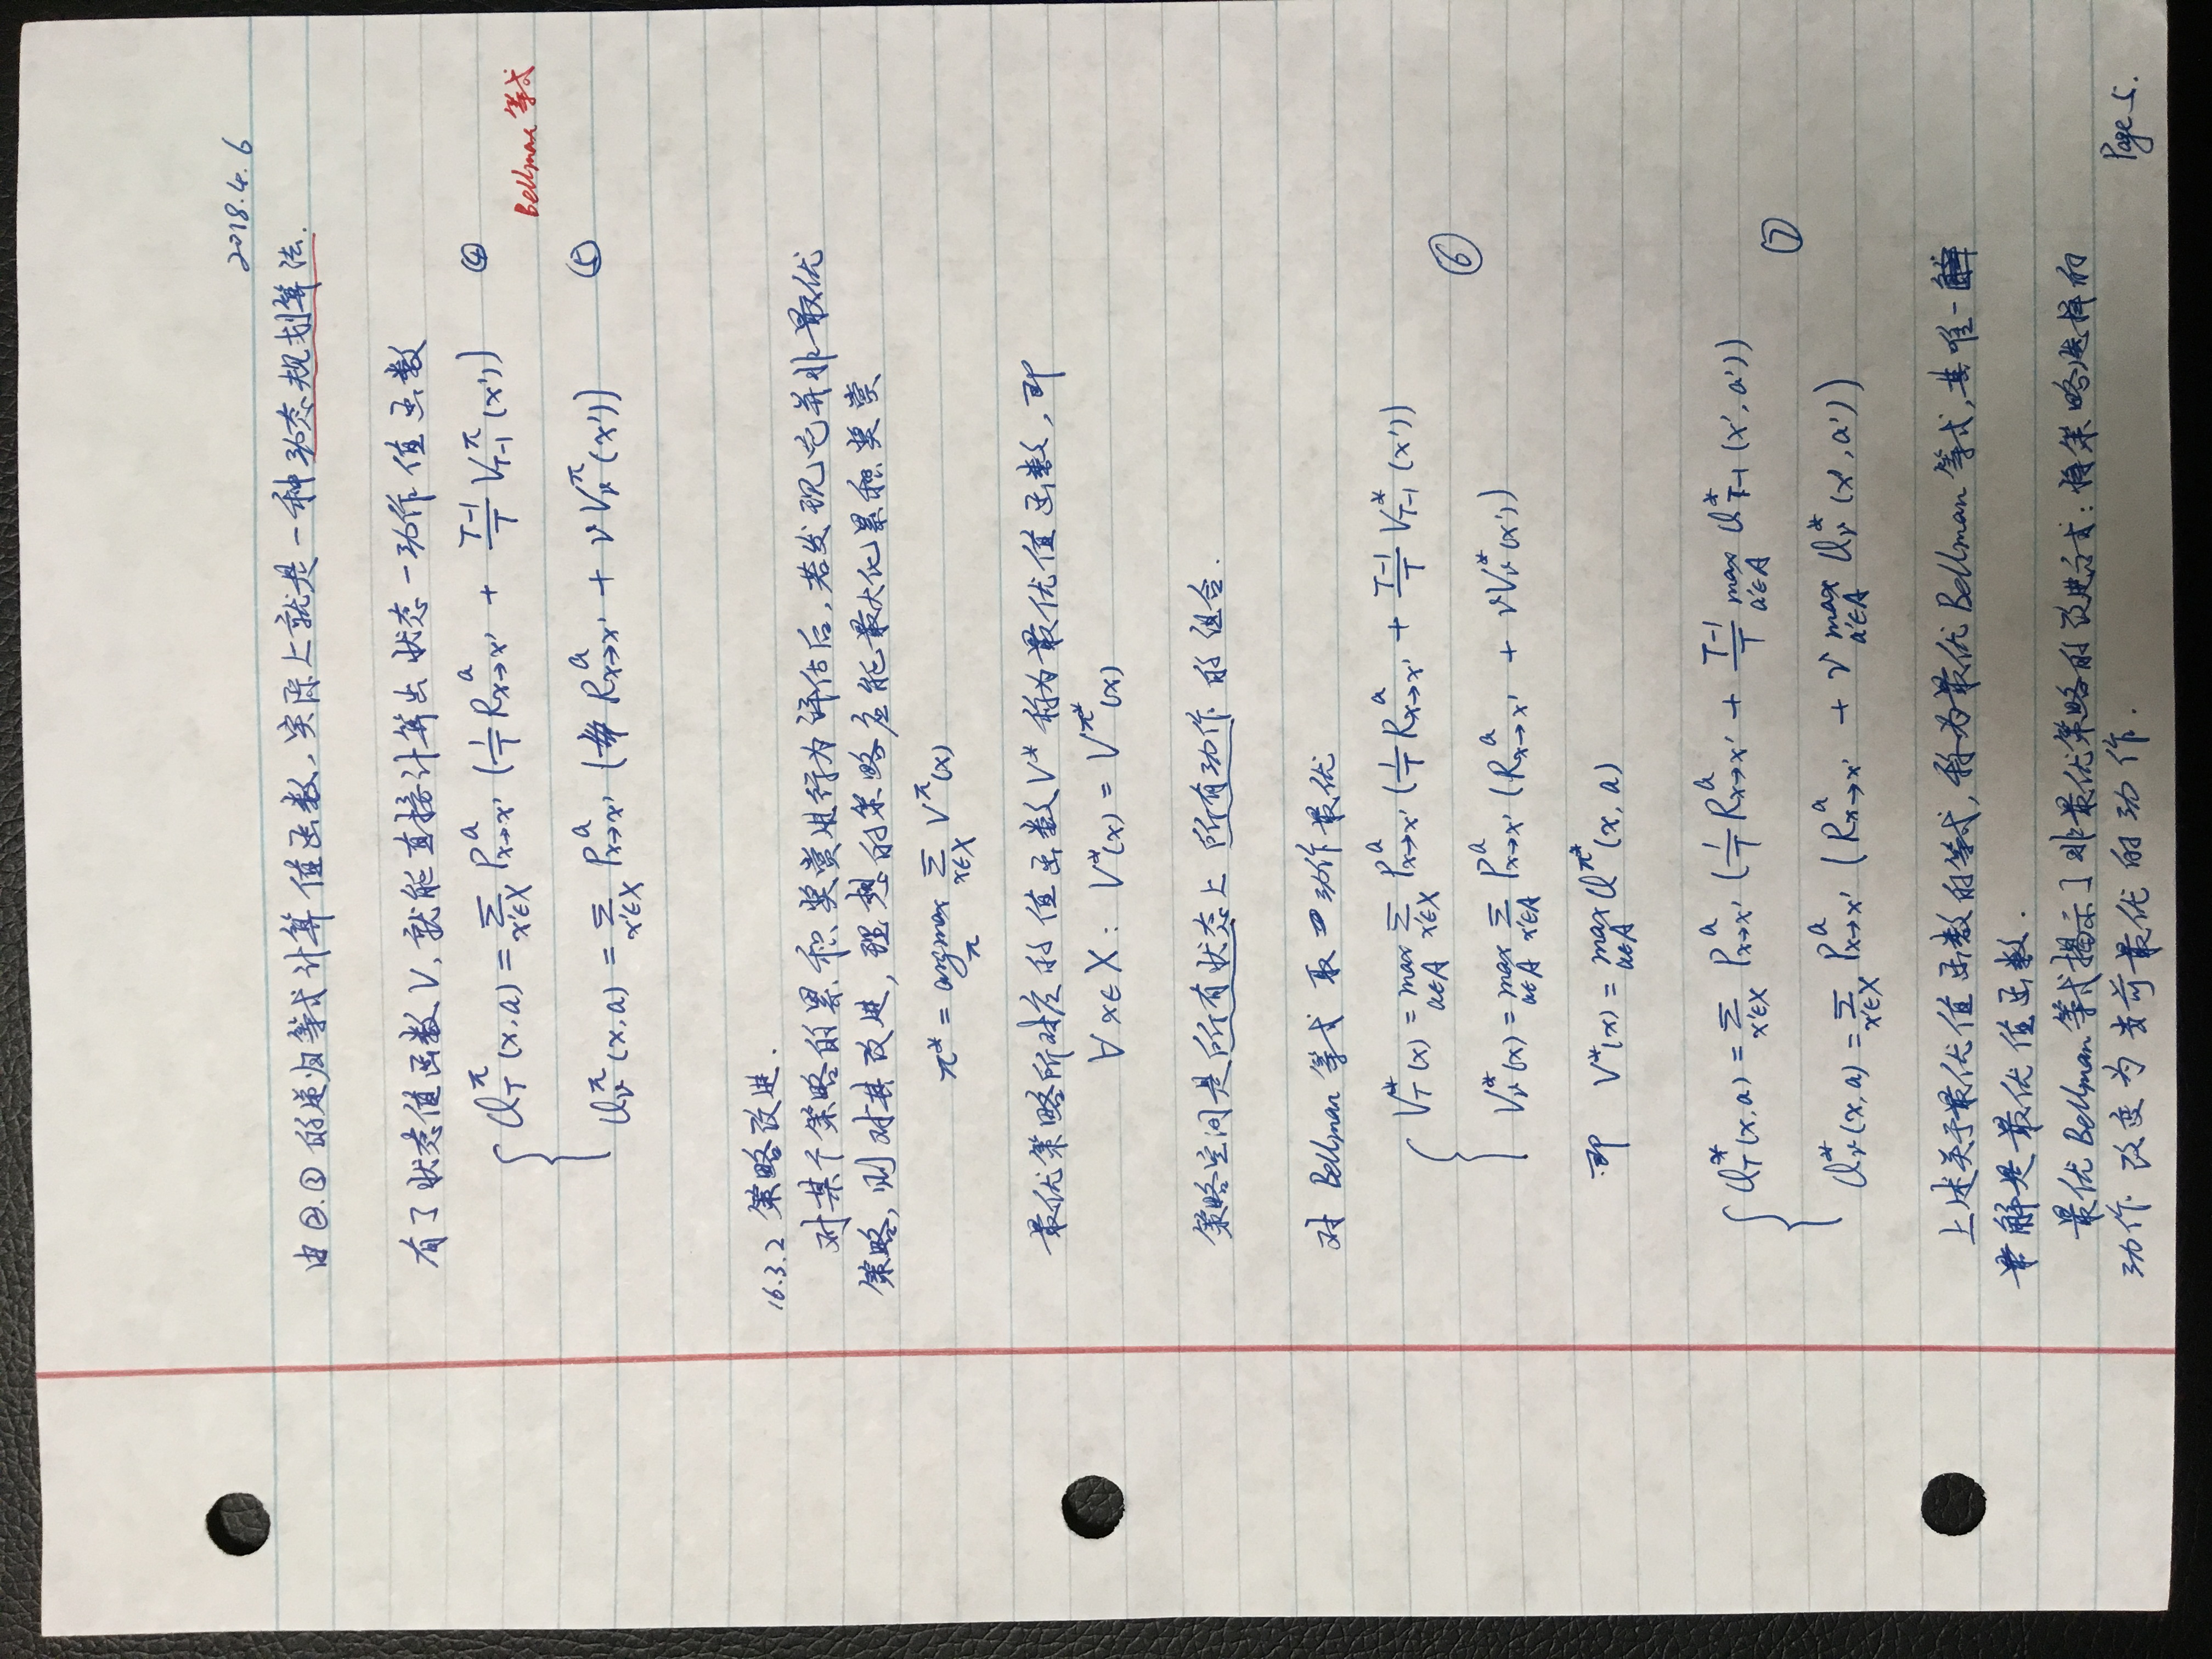 2018.4.6
由②.③的递归等式计算值函数,实际上就是一种动态规划算法.
有了状态值函数V,就能直接计算出状态-动作值函数
Q_T^π(x,a) = Σ_{x'∈X} P_{x→x'}^a (1/T R_{x→x'}^a + (T-1)/T V_{T-1}^π(x')) ④
Bellman等式
Q_γ^π(x,a) = Σ_{x'∈X} P_{x→x'}^a (R_{x→x'}^a + γV_γ^π(x')) ⑤
16.3.2 策略改进.
对某个策略的累积奖赏进行为评估后,若发现它并非最优
策略,则对其改进,理想的策略应能最大化累积奖赏
π* = argmax_π Σ_{x∈X} V^π(x)
最优策略所对应的值函数V*称为最优值函数,即
∀x∈X: V*(x) = V^{π*}(x)
策略空间是所有状态上所有动作的组合.
对Bellman等式取动作最优
V_T^*(x) = max_{a∈A} Σ_{x'∈X} P_{x→x'}^a (1/T R_{x→x'}^a + (T-1)/T V_{T-1}^*(x'))
⑥
V_γ^*(x) = max_{a∈A} Σ_{x'∈A} P_{x→x'}^a (R_{x→x'}^a + γV_γ^*(x'))
即 V*(x) = max_{a∈A} Q^{π*}(x,a)
Q_T^*(x,a) = Σ_{x'∈X} P_{x→x'}^a (1/T R_{x→x'}^a + (T-1)/T max_{a'∈A} Q_{T-1}^*(x',a'))
⑦
Q_γ^*(x,a) = Σ_{x'∈X} P_{x→x'}^a (R_{x→x'}^a + γ max_{a'∈A} Q_γ^*(x',a'))
上述关于最优值函数的等式,称为最优Bellman等式,其唯一
解是最优值函数.
最优Bellman等式揭示了非最优策略的改进方式:将策略选择的
动作改变为当前最优的动作.
Page 5.